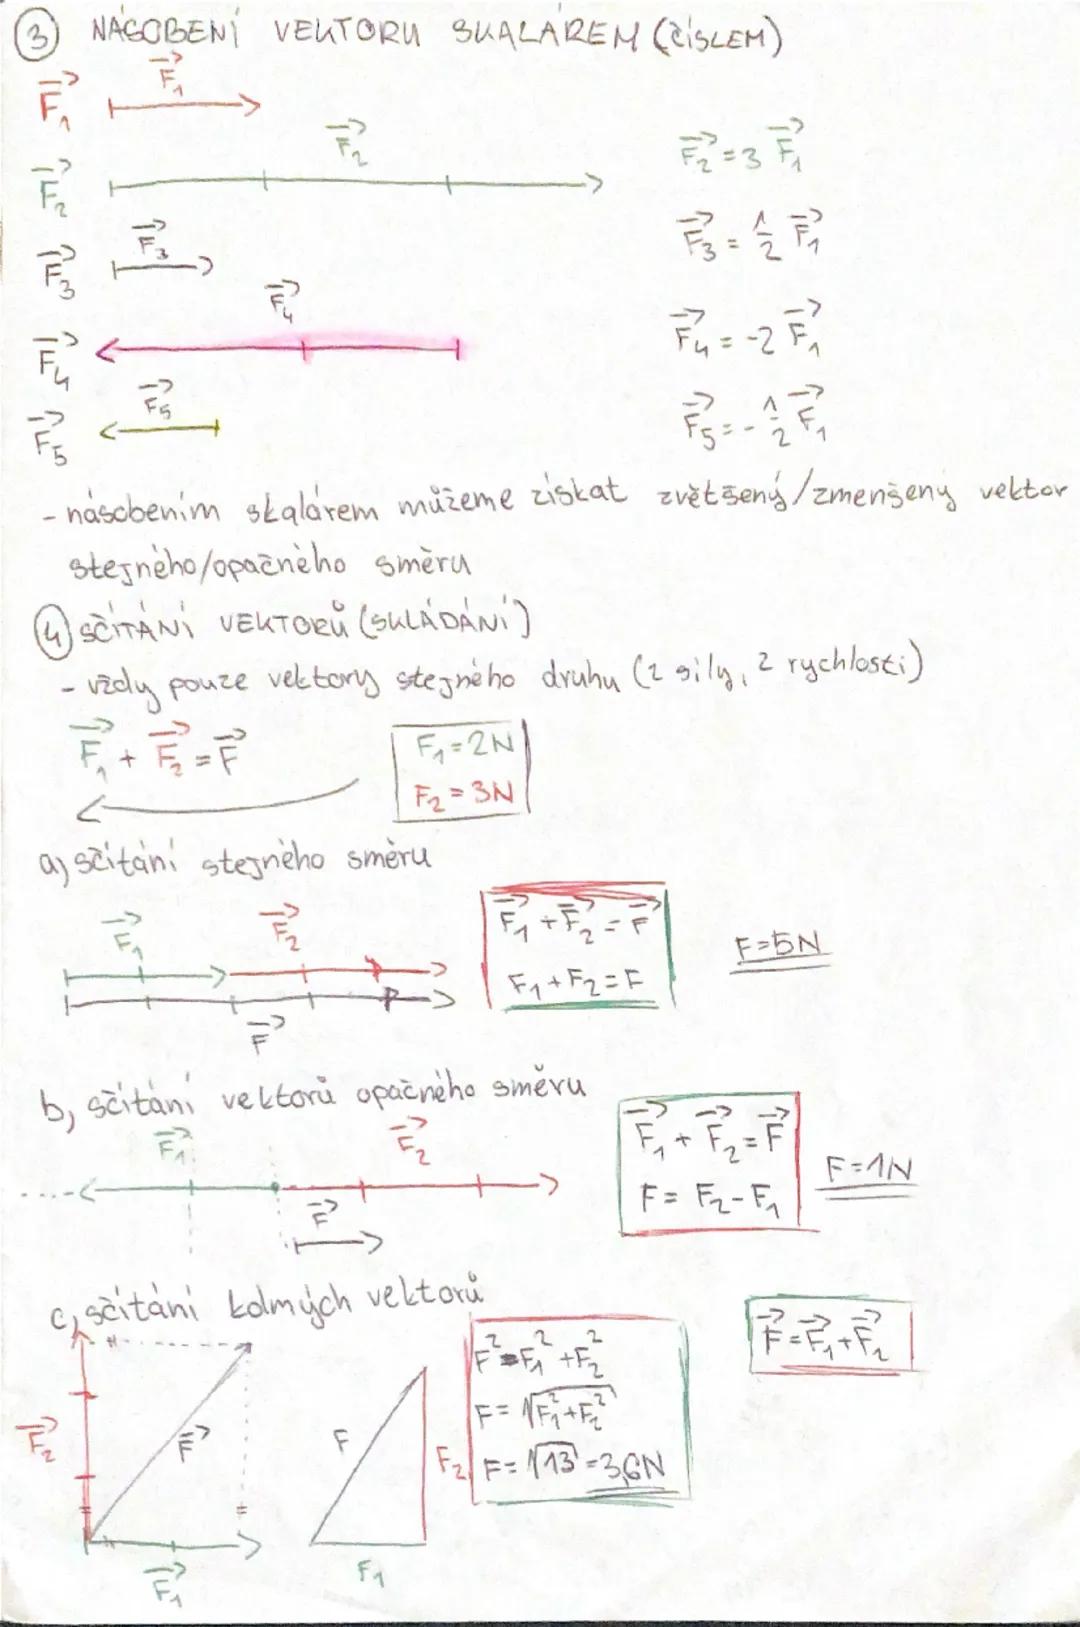 ③ NÁSOBENÍ VEKTORU SKALÁREM (ČÍSLEM)
F₁ F₁
F₂ F₂ F₂ = 3 F₁
F₃ F₃ F₃ = 1/2 F₁
F₄ F₄ F₄ = -2 F₁
F₅ F₅ F₅ = - 1/2 F₁
- násobením skalárem můžeme získat zvětšený/zmenšený vektor
stejného/opačného směru
④ SČÍTÁNÍ VEKTORŮ (SKLÁDÁNÍ)
- vždy pouze vektory stejného druhu (2 síly, 2 rychlosti)
F₁ + F₂ = F F₁ = 2N
F₂ = 3N
a) sčítání stejného směru
F₁ F₂ F₁ + F₂ = F F=5N
F₁ + F₂ = F
F
b, sčítání vektorů opačného směru
F₁ F₂ F₁ + F₂ = F F=1N
F F = F₂ - F₁
c, sčítání kolmých vektorů
F² = F₁² + F₂² F = F₁ + F₂
F = √F₁² + F₂²
F₂ F F F₂ F = √13 = 3,6N
F₁ F₁